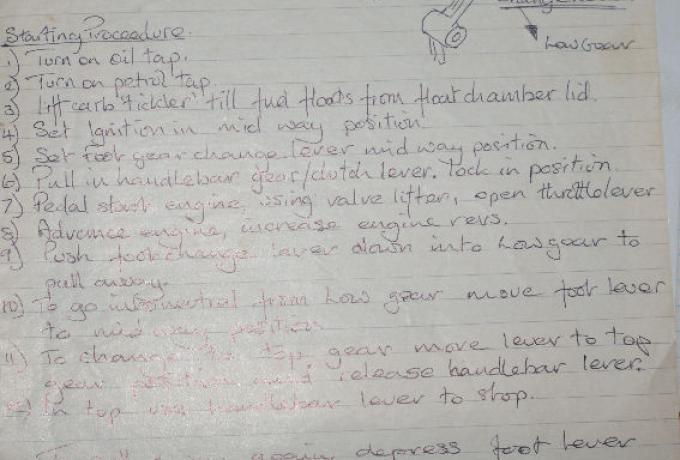 Starting Proceedure.
Low Gear
1) Turn on oil tap.
2) Turn on petrol tap.
3) Lift carb 'tickler' till fuel floats from float chamber lid.
4) Set Ignition in mid way position.
5) Set foot gear change lever mid way position.
6) Pull in handlebar gear/clutch lever. lock in position.
7) Pedal start engine, using valve lifter, open throttle lever
8) Advance engine, increase engine revs.
9) Push foot change lever down into Low gear to
pull away.
10) To go into neutral from Low gear move foot lever
to mid way position.
11) To change to top gear move lever to top
gear position and release handlebar lever.
12) In top use handlebar lever to stop.
again depress foot lever